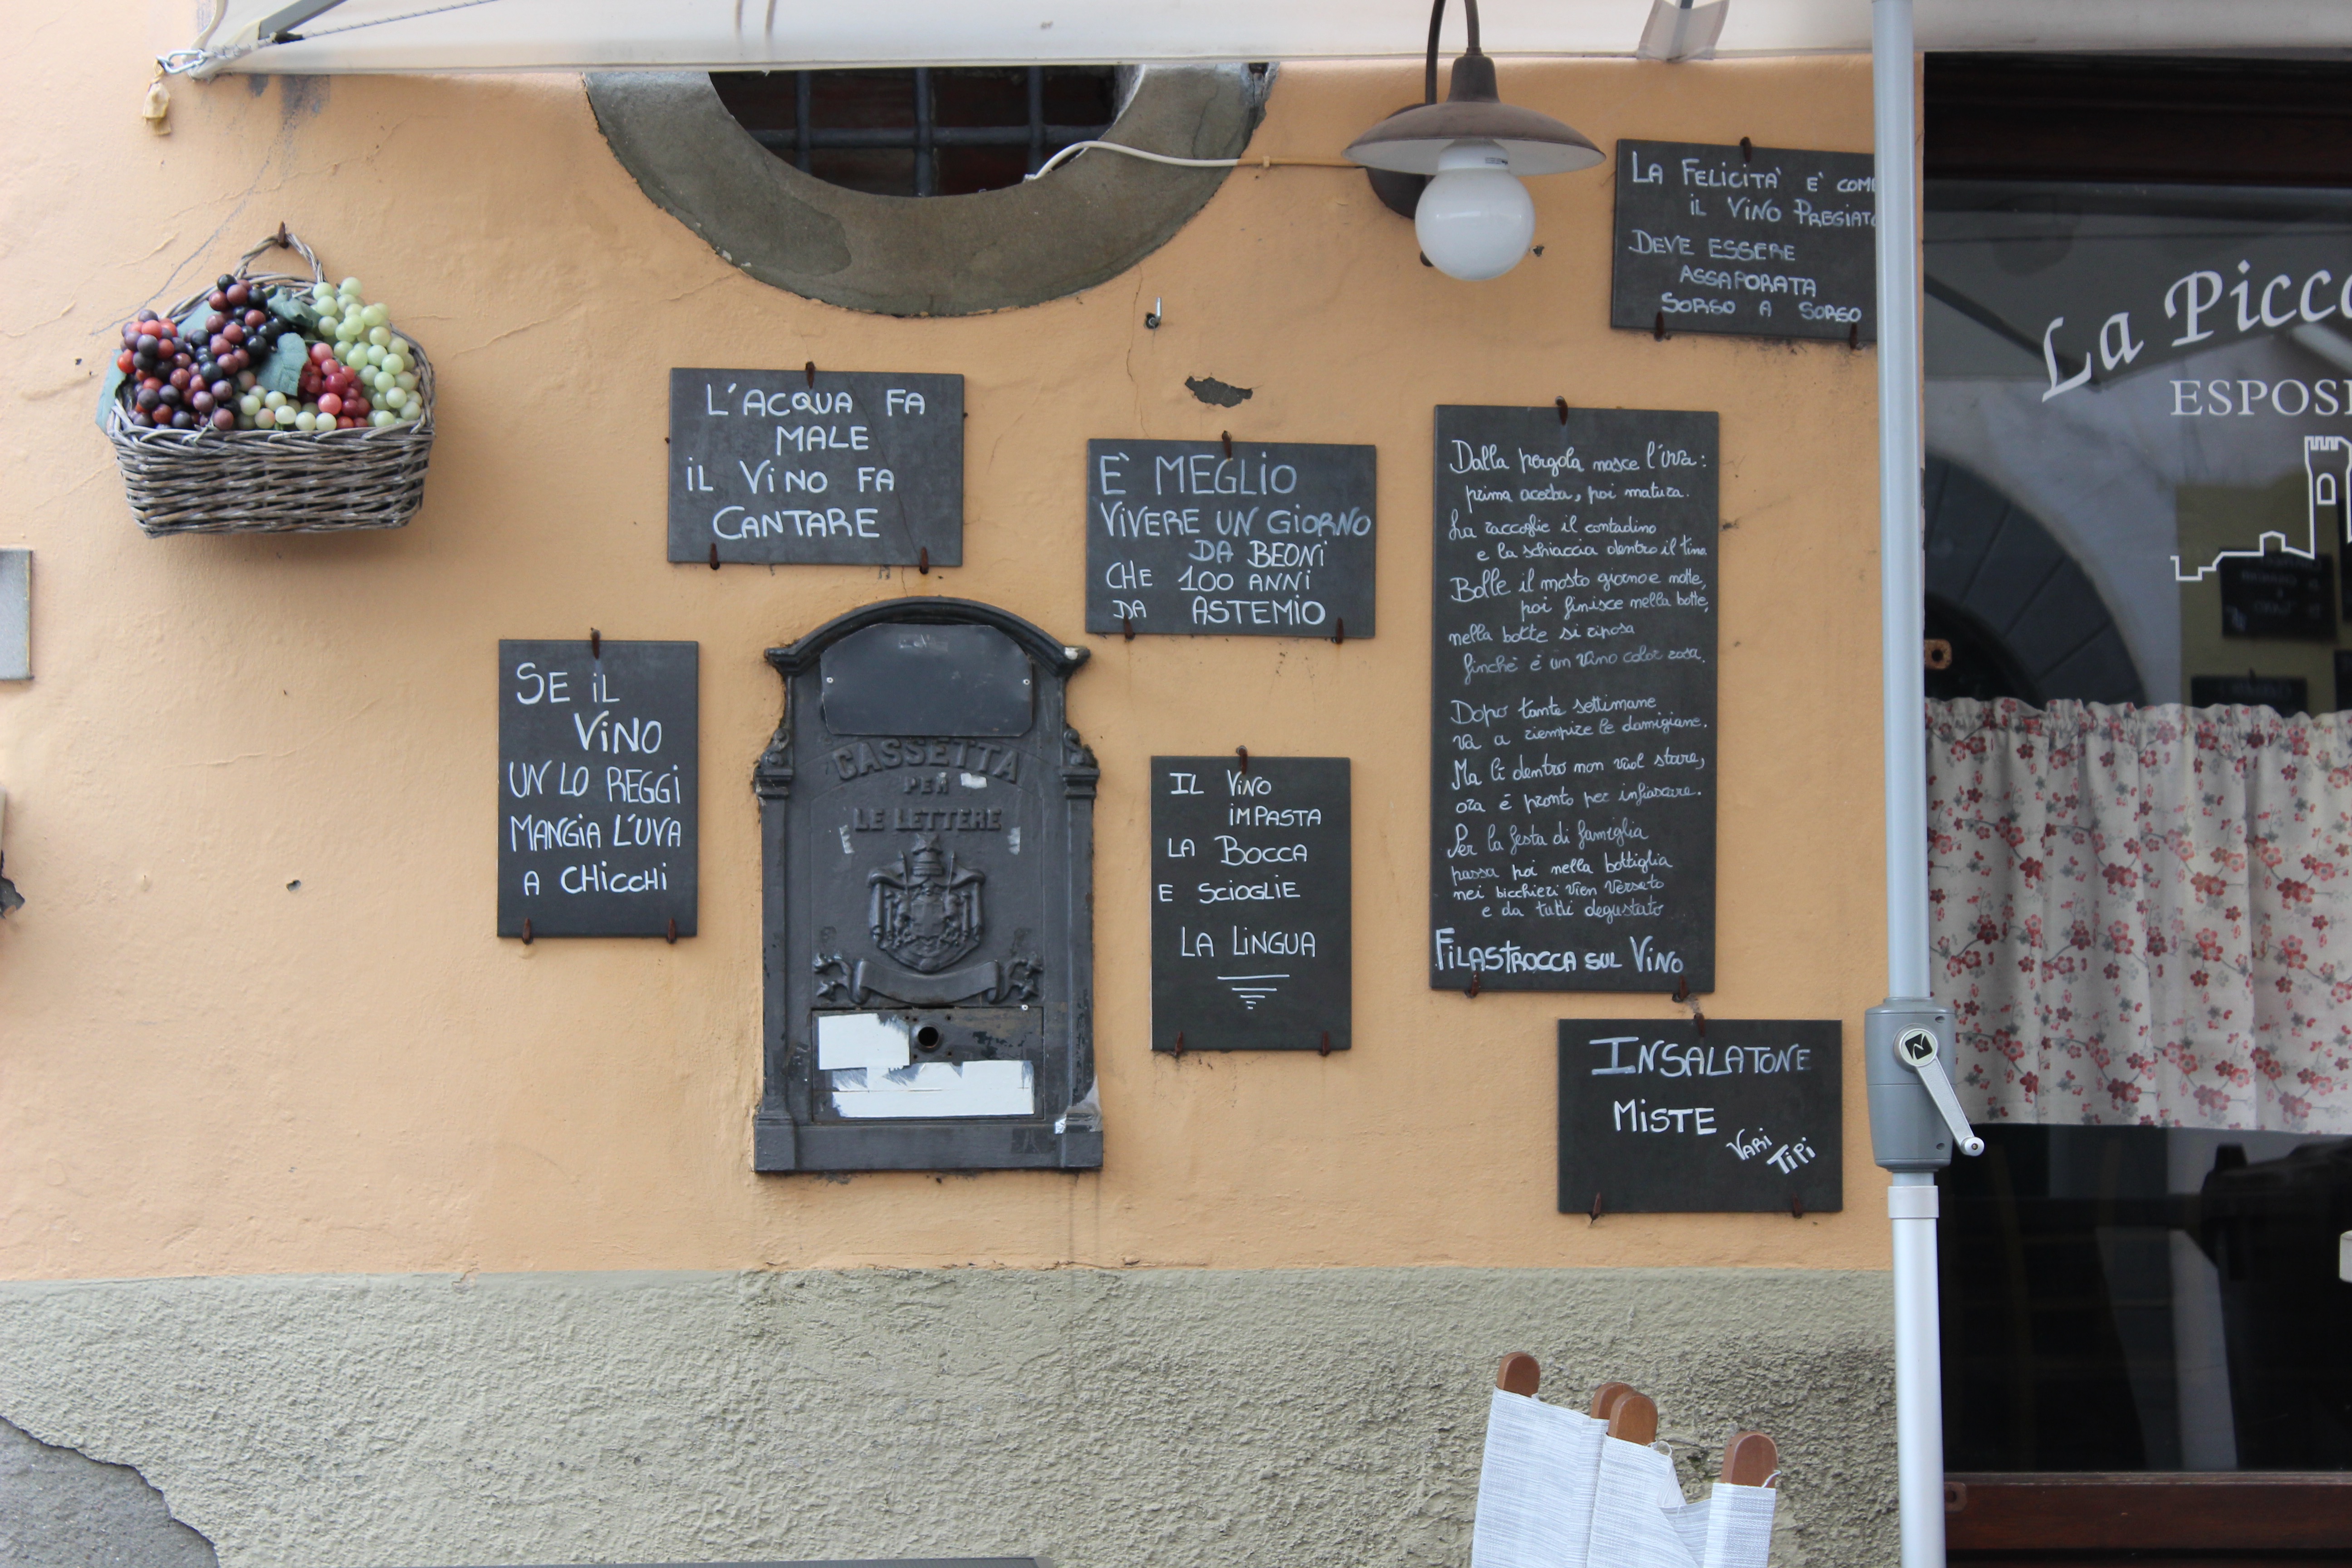 LA FELICITA' E' COME
IL VINO PREGIATO
DEVE ESSERE
ASSAPORATA
SORSO A SORSO
La Picco
ESPOSI
L'ACQUA FA
MALE
IL VINO FA
CANTARE
E' MEGLIO
VIVERE UN GIORNO
DA BEONI
CHE 100 ANNI
DA ASTEMIO
Dalla pergola nasce l'uva:
prima acerba, poi matura.
La raccoglie il contadino
e la schiaccia dentro il tino
Bolle il mosto giorno e notte,
poi finisce nella botte,
nella botte si riposa
finchè è un vino color rosa.
Dopo tante settimane
va a riempire le damigiane.
Ma lì dentro non vuol stare,
ora è pronto per infiascare.
Per la festa di famiglia
passa poi nella bottiglia
nei bicchieri vien versato
e da tutti degustato
FILASTROCCA SUL VINO
SE IL
VINO
UN LO REGGI
MANGIA L'UVA
A CHICCHI
CASSETTA
PER
LE LETTERE
IL VINO
IMPASTA
LA BOCCA
E SCIOGLIE
LA LINGUA
INSALATONE
MISTE
VARI
TIPI